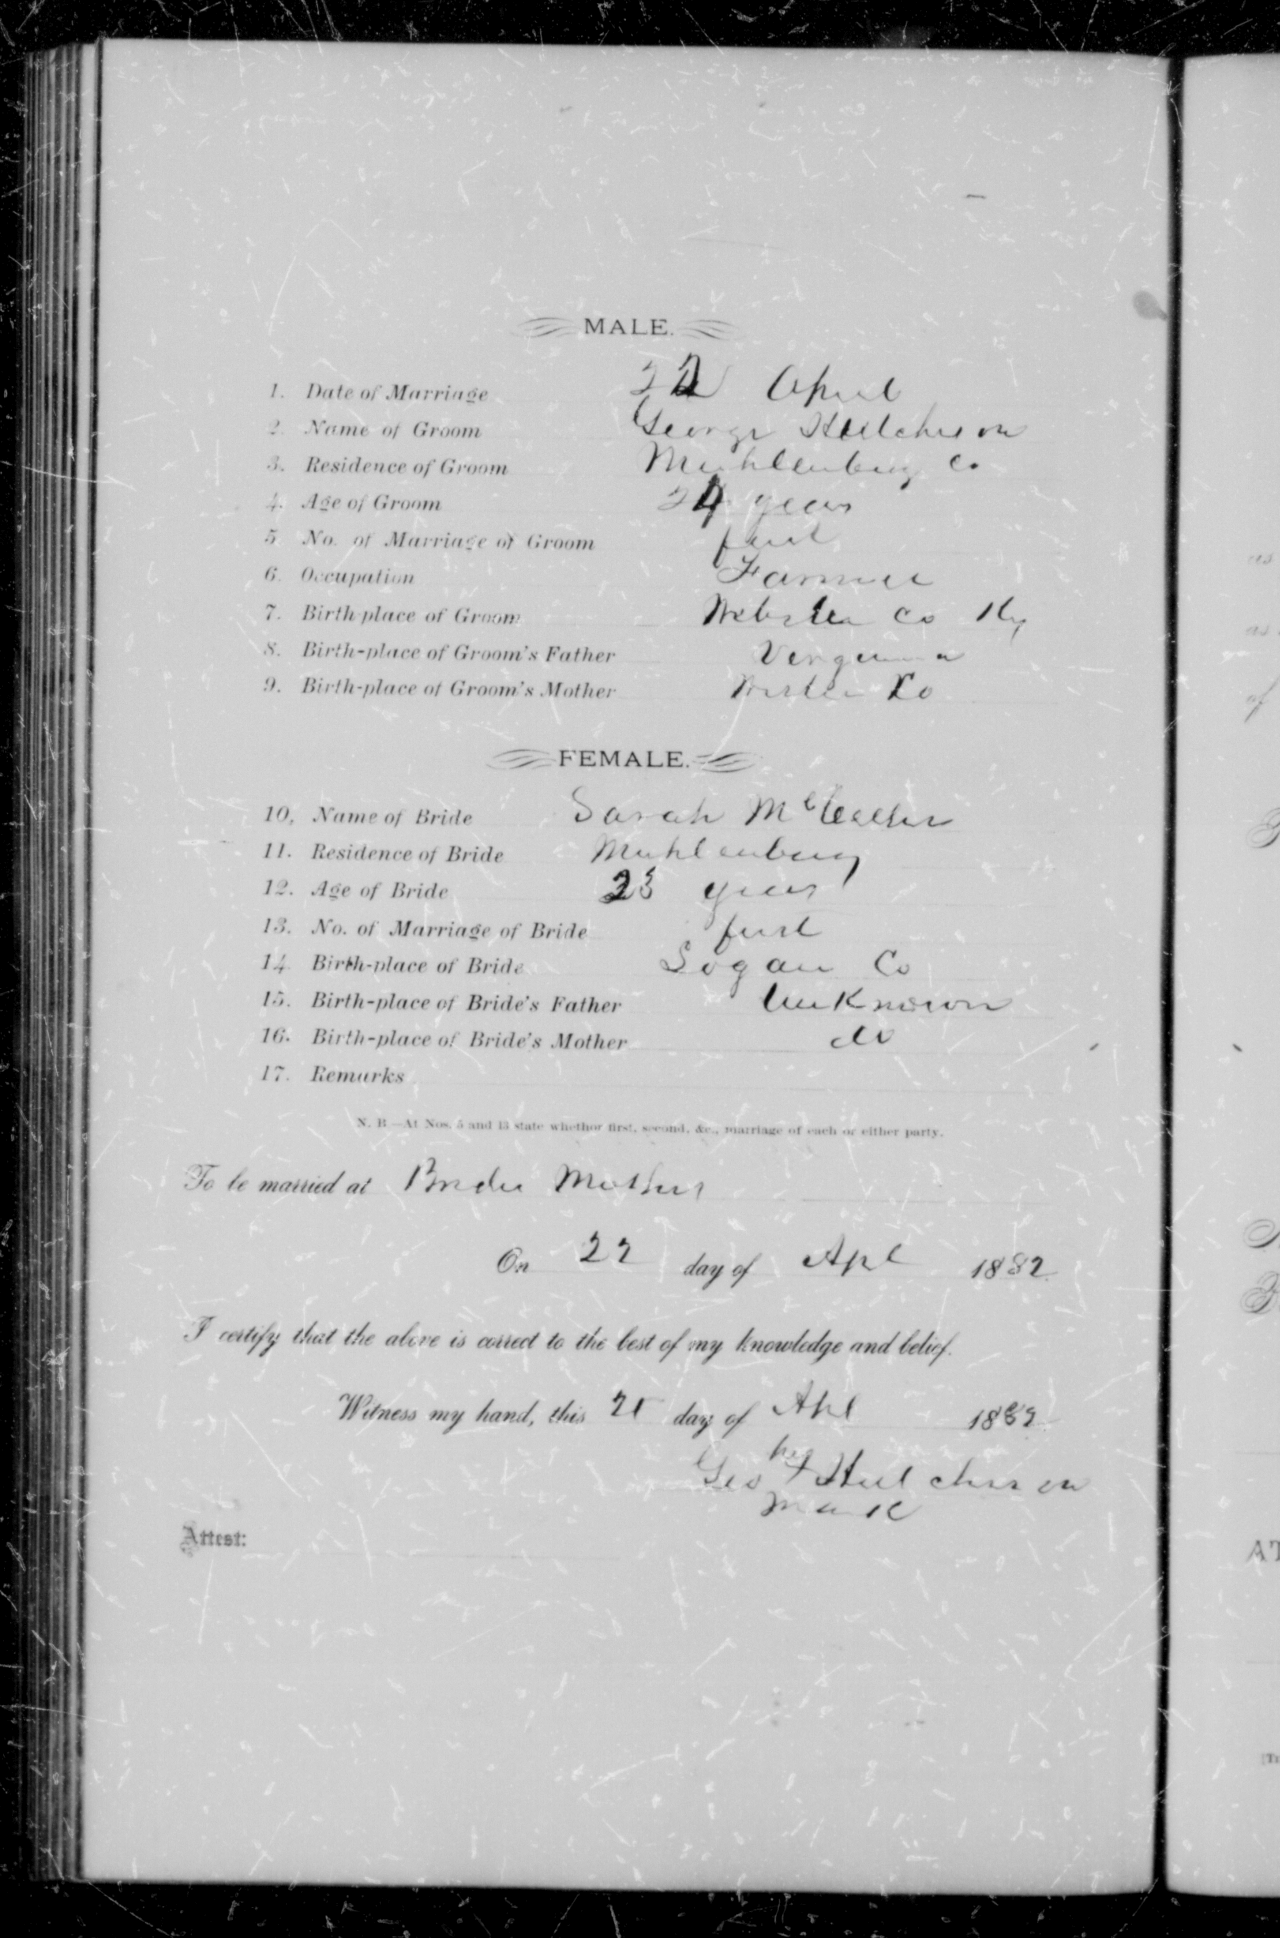 MALE.
1. Date of Marriage 22 April
2. Name of Groom George Hutcherson
3. Residence of Groom Muhlenburg Co
4. Age of Groom 24 years
5. No. of Marriage of Groom first
6. Occupation Farmer
7. Birth-place of Groom Webster Co Ky
8. Birth-place of Groom's Father Virginia
9. Birth-place of Groom's Mother Co
FEMALE.
10. Name of Bride Sarah
11. Residence of Bride Muhlenburg
12. Age of Bride 23 years
13. No. of Marriage of Bride first
14. Birth-place of Bride Logan Co
15. Birth-place of Bride's Father Unknown
16. Birth-place of Bride's Mother do
17. Remarks
N. B.—At Nos. 5 and 13 state whether first, second, &c., marriage of each or either party.
To be married at Brides Mothers
On 22 day of Apl 1882
I certify that the above is correct to the best of my knowledge and belief.
Witness my hand, this 21 day of Apl 1882
his
Geo + Hutcherson
mark
Attest: